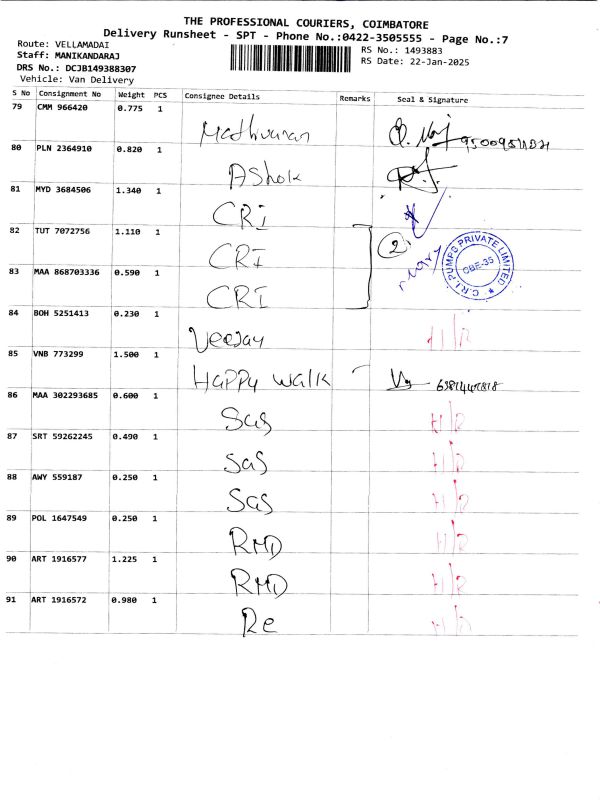 THE PROFESSIONAL COURIERS, COIMBATORE
Delivery Runsheet - SPT - Phone No.:0422-3505555 - Page No.:7
Route: VELLAMADAI
Staff: MANIKANDARAJ
DRS No.: DCJB149388307
Vehicle: Van Delivery
RS No.: 1493883
RS Date: 22-Jan-2025
S No Consignment No Weight PCS Consignee Details Remarks Seal & Signature
79 CMM 966420 0.775 1 Mathivanan
80 PLN 2364910 0.820 1 Ashok
81 MYD 3684506 1.340 1 CRI
82 TUT 7072756 1.110 1 CRI 2
83 MAA 868703336 0.590 1 CRI
C.R.I. PUMPS PRIVATE LIMITED
CBE-35
84 BOH 5251413 0.230 1 Veejay H/R
85 VNB 773299 1.500 1 Happy walk
86 MAA 302293685 0.600 1 Sas H/R
87 SRT 59262245 0.490 1 Sas H/R
88 AWY 559187 0.250 1 Sas H/R
89 POL 1647549 0.250 1 RMD H/R
90 ART 1916577 1.225 1 RMD H/R
91 ART 1916572 0.980 1 Re H/R